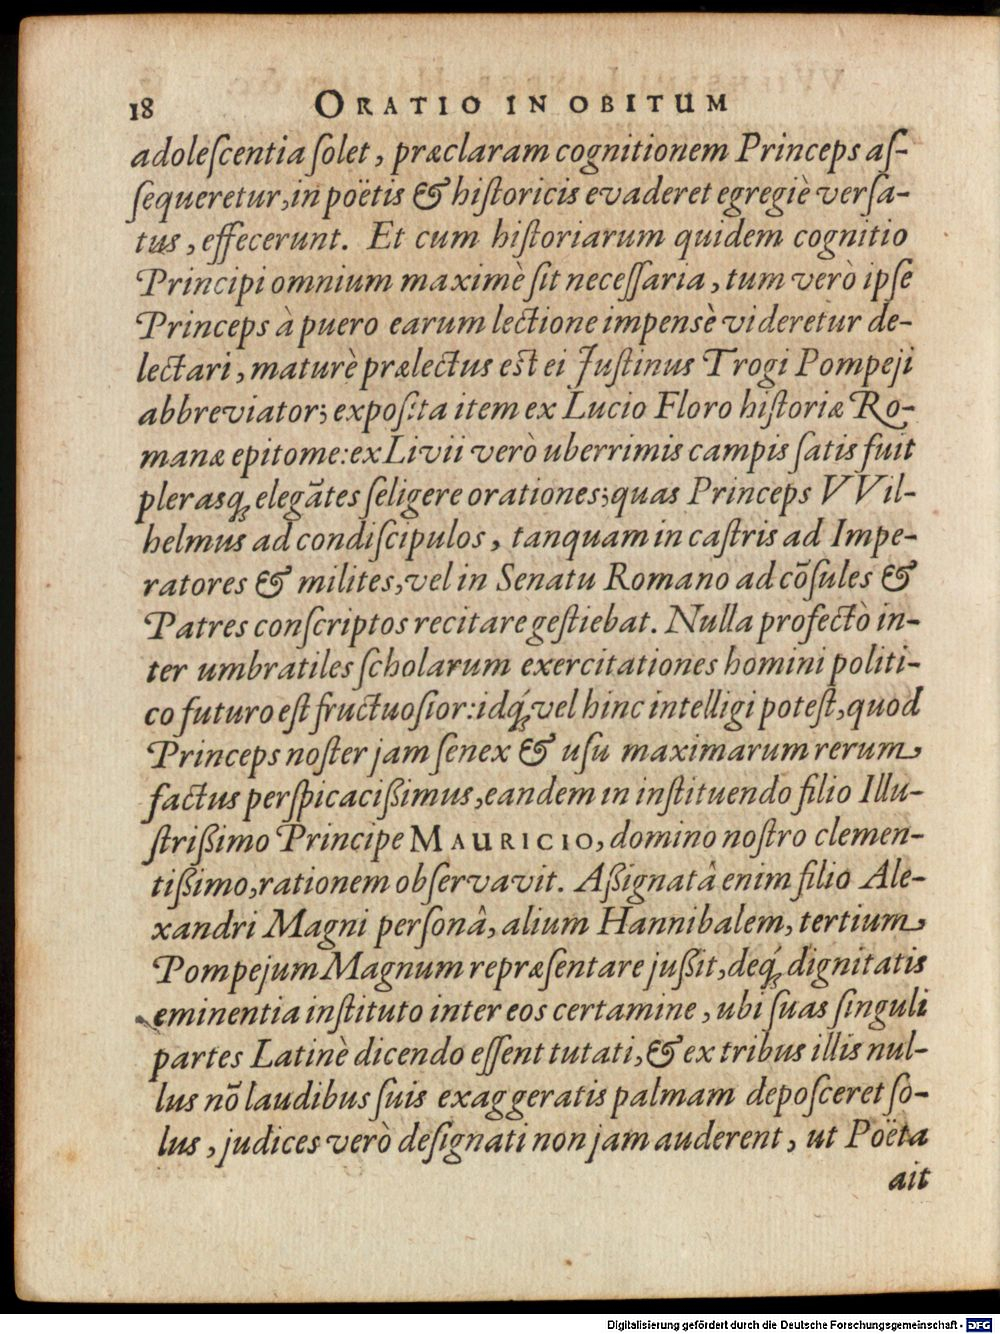 18 ORATIO IN OBITUM
adoleſcentia ſolet, præclaram cognitionem Princeps aſ-
ſequeretur, in poëtis & hiſtoricis evaderet egregiè verſa-
tus, effecerunt. Et cum hiſtoriarum quidem cognitio
Principi omnium maximè ſit neceſſaria, tum verò ipſe
Princeps à puero earum lectione impensè videretur de-
lectari, maturè prælectus est ei Juſtinus Trogi Pompeji
abbreviator; expoſita item ex Lucio Floro hiſtoriæ Ro-
manæ epitome: ex Livii verò uberrimis campis ſatis fuit
plerasq́; elegātes ſeligere orationes; quas Princeps VVil-
helmus ad condiſcipulos, tanquam in caſtris ad Impe-
ratores & milites, vel in Senatu Romano ad cōſules &
Patres conſcriptos recitare geſtiebat. Nulla profectò in-
ter umbratiles ſcholarum exercitationes homini politi-
co futuro eſt fructuoſior: idq́; vel hinc intelligi poteſt, quod
Princeps noſter jam ſenex & uſu maximarum rerum
factus perſpicacißimus, eandem in inſtituendo filio Illu-
ſtrißimo Principe MAURICIO, domino noſtro clemen-
tißimo, rationem obſervavit. Aßignatâ enim filio Ale-
xandri Magni perſonâ, alium Hannibalem, tertium
Pompejum Magnum repræſentare jußit, deq́; dignitatis
eminentia inſtituto inter eos certamine, ubi ſuas ſinguli
partes Latinè dicendo eſſent tutati, & ex tribus illis nul-
lus nō laudibus ſuis exaggeratis palmam depoſceret ſo-
lus, judices verò deſignati non jam auderent, ut Poëta
ait
Digitalisierung gefördert durch die Deutsche Forschungsgemeinschaft - DFG